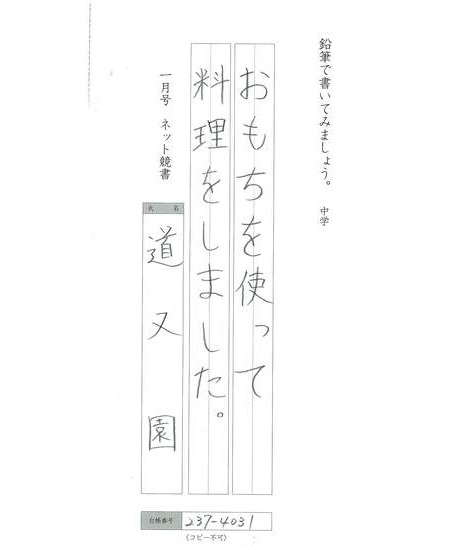 鉛筆で書いてみましょう。 中学
おもちを使って
料理をしました。
一月号 ネット競書
氏 名
道又園
台帳番号 237-4031
(コピー不可)